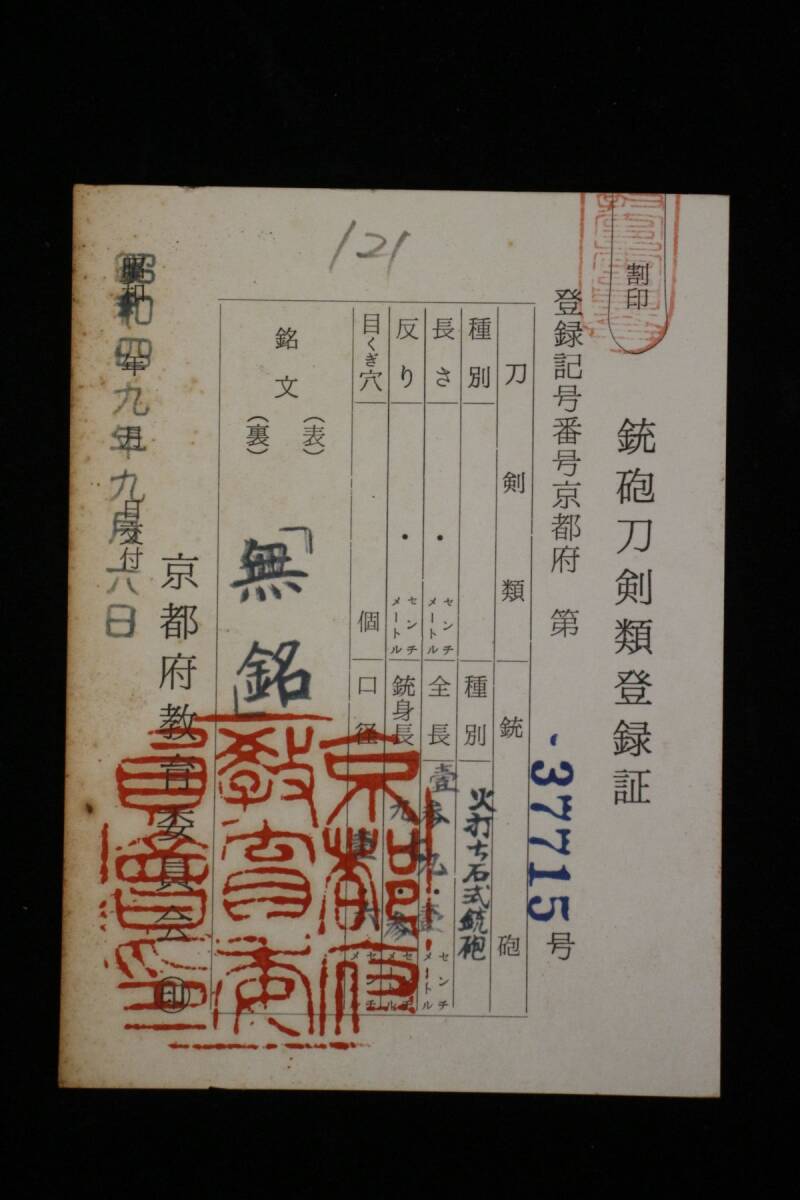 121
割印
銃砲刀剣類登録証
登録記号番号京都府 第 37715 号
刀剣類 銃砲
種別 種別 火打ち石式銃砲
長さ ・ センチメートル 全長 壹参九・壹 センチメートル
反り ・ センチメートル 銃身長 九七・参 センチメートル
目くぎ穴 個 口径 壹・六 センチメートル
銘文 (表) (裏) 「無銘」
京都府教育委員会 印
昭和 年 月 日交付
昭和四九年九月六日